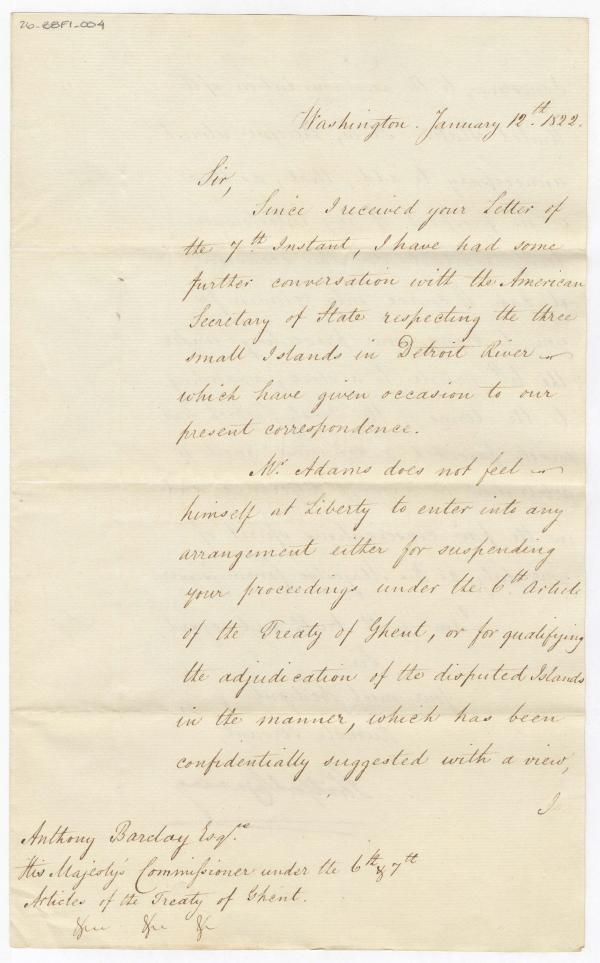 26-BBF1-004
Washington. January 12.th 1822.
Sir,
Since I received your Letter of
the 7.th Instant, I have had some
further conversation with the American
Secretary of State respecting the three
small Islands in Detroit River
which have given occasion to our
present correspondence.
Mr. Adams does not feel
himself at Liberty to enter into any
arrangement either for suspending
your proceedings under the 6.th Article
of the Treaty of Ghent, or for qualifying
the adjudication of the disputed Islands
in the manner, which has been
confidentially suggested with a view,
I
Anthony Barclay Esq.re
His Majesty's Commissioner under the 6th & 7th
Articles of the Treaty of Ghent.
&c &c &c